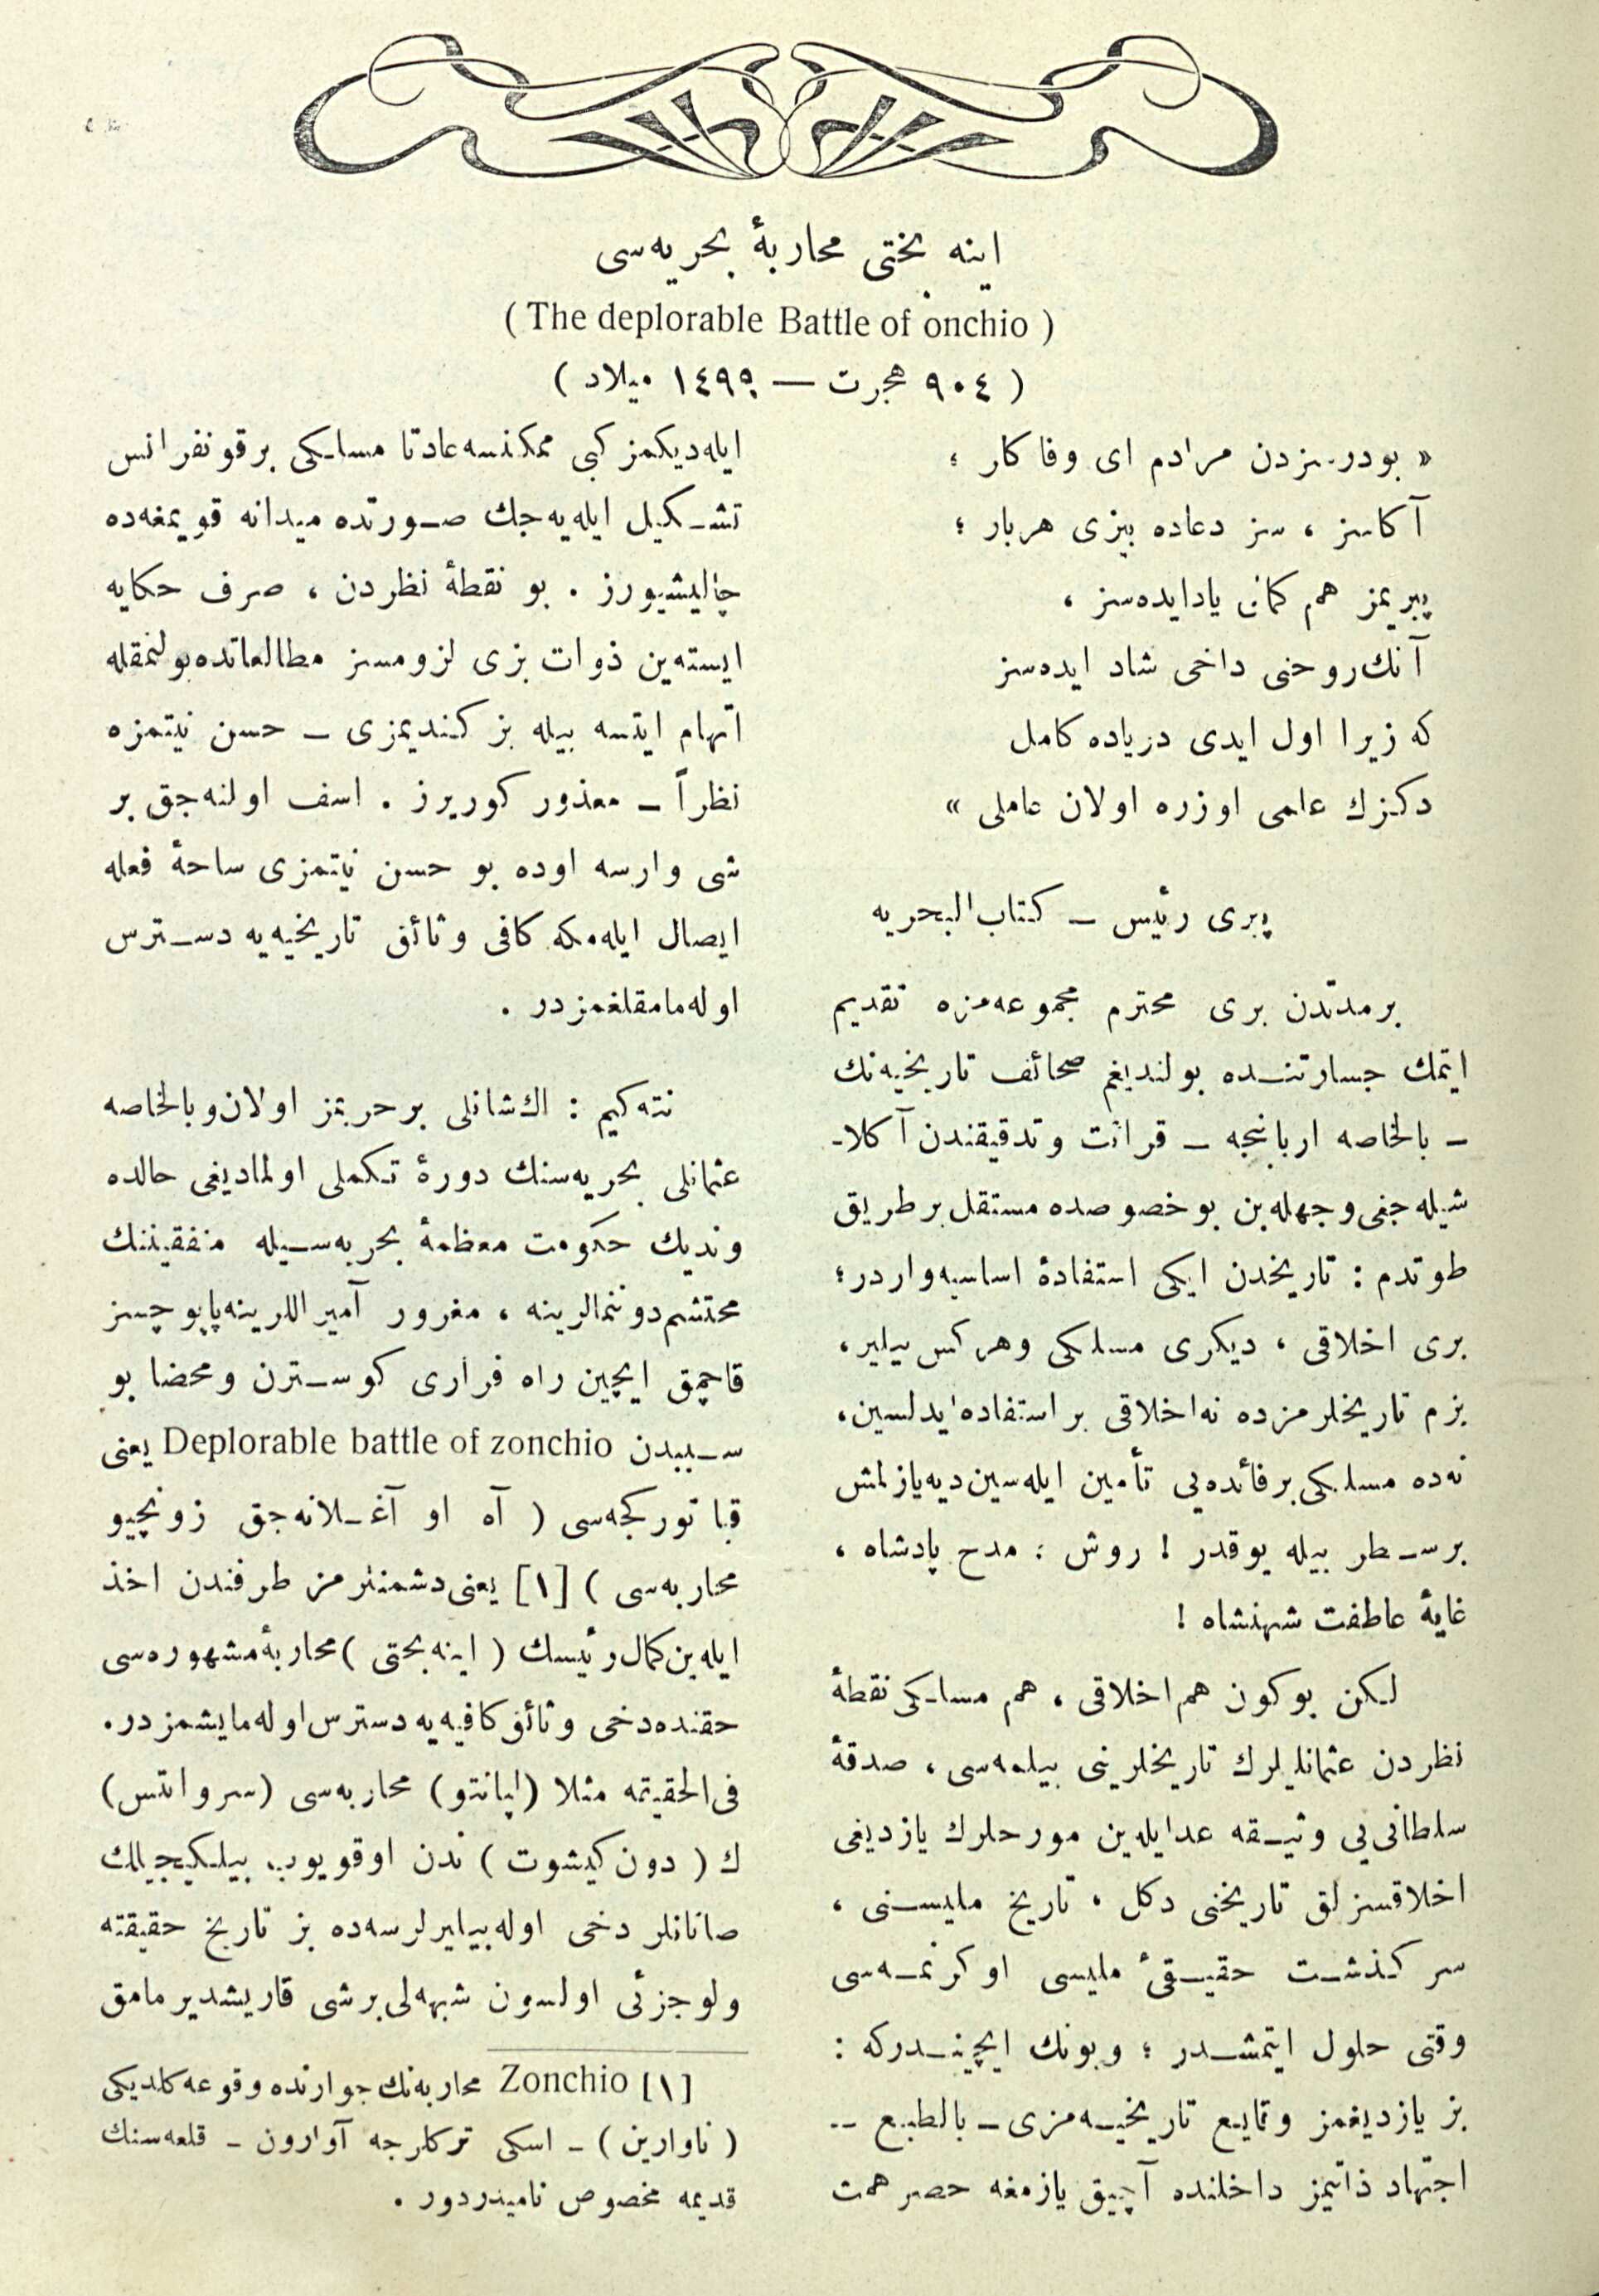 اینه بختی محاربهٔ بحریه‌سی
( The deplorable Battle of onchio )
( ٩٠٤ هجرت — ١٤٩٩ میلاد )
« بودر سزدن مرادم ای وفا کار ؛
آکاسز ، سز دعاده بیزی هربار ؛
پیریمز هم کمان یادایده‌سز ،
آنك روحنی داخی شاد ایده‌سز
که زیرا اول ایدی دریاده کامل
دکزك علمی اوزره اولان عاملی »
پیری رئیس ـ کتاب البحریه
برمدتدن بری محترم مجموعه‌مزه تقدیم
ایتمك جسارتنده بولندیغم صحائف تاریخیه‌نك
ـ بالخاصه اربابنجه ـ قرائت وتدقیقندن آکلا-
شیله‌جغی وجهله‌بن بوخصوصده مستقل برطریق
طوتدم : تاریخدن ایکی استفادهٔ اساسیه‌واردر؛
بری اخلاقی ، دیکری مسلکی وهرکس بیلیر،
بزم تاریخلرمزده نه‌اخلاقی بر استفاده ایدلسین،
نه‌ده مسلکی برفائده‌یی تأمین ایله‌سین دیه‌یازلمش
برسطر بیله یوقدر ! روش : مدح پادشاه ،
غایهٔ عاطفت شهنشاه !
لکن بوکون هم اخلاقی ، هم مسلکی نقطهٔ
نظردن عثمانلیلرك تاریخلرینی بیلمه‌سی ، صدقهٔ
سلطانی‌یی وثیقه عدایله‌ین مورحلرك یازدیغی
اخلاقسزلق تاریخنی دکل ، تاریخ ملیسنی ،
سرکذشت حقیقیٔ ملیسی اوکرنمه‌سی
وقتی حلول ایتمشدر ؛ وبونك ایچیندرکه :
بز یازدیغمز وقایع تاریخیه‌مزی ـ بالطبع --
اجتهاد ذاتیمز داخلنده آچیق یازمغه حصر همت
ایله‌دیکمز کبی ممکنسه عادتا مسلکی برقونفرانس
تشکیل ایله‌یه‌جك صورتده میدانه قویمغه‌ده
چالیشیورز . بو نقطهٔ نظردن ، صرف حکایه
ایسته‌ین ذوات بزی لزومسز مطالعاتده‌بولنمقله
اتهام ایتسه بیله بز کندیمزی ـ حسن نیتمزه
نظراً ـ معذور کوریرز . اسف اولنه‌جق بر
شی وارسه اوده بو حسن نیتمزی ساحهٔ فعله
ایصال ایله‌مکه کافی وثائق تاریخیه‌یه دسترس
اوله‌مامقلغمزدر .
نته‌کیم : اك‌شانلی برحربمز اولان‌وبالخاصه
عثمانلی بحریه‌سنك دورهٔ تکملی اولمادیغی حالده
وندیك حکومت معظمهٔ بحریه‌سیله متفقیننك
محتشم‌دوننمالرینه ، مغرور آمیراللرینه‌پاپوچسز
قاچمق ایچین راه فراری کوسترن ومحضا بو
سببدن Deplorable battle of zonchio یعنی
قبا تورکجه‌سی ( آه او آغلانه‌جق زونچیو
محاربه‌سی ) [١] یعنی‌دشمنلرمز طرفندن اخذ
ایله‌ین‌کمال‌رئیسك ( اینه‌بختی )محاربهٔ‌مشهوره‌سی
حقنده‌دخی وثائق‌کافیه‌یه دسترس‌اوله‌مایشمزدر.
فی‌الحقیقه مثلا (لپانتو) محاربه‌سی (سروانتس)
ك ( دون کیشوت ) ندن اوقویوب بیلکیجیلك
صاتانلر دخی اوله‌بیلیرلرسه‌ده بز تاریخ حقیقته
ولوجزئی اولسون شبهه‌لی‌برشی قاریشدیرمامق
[١] Zonchio محاربه‌نك‌جوارنده وقوعه‌کلدیکی
( ناوارین ) ـ اسکی ترکلرجه آوارون ـ قلعه‌سنك
قدیمه مخصوص نامیدردور .